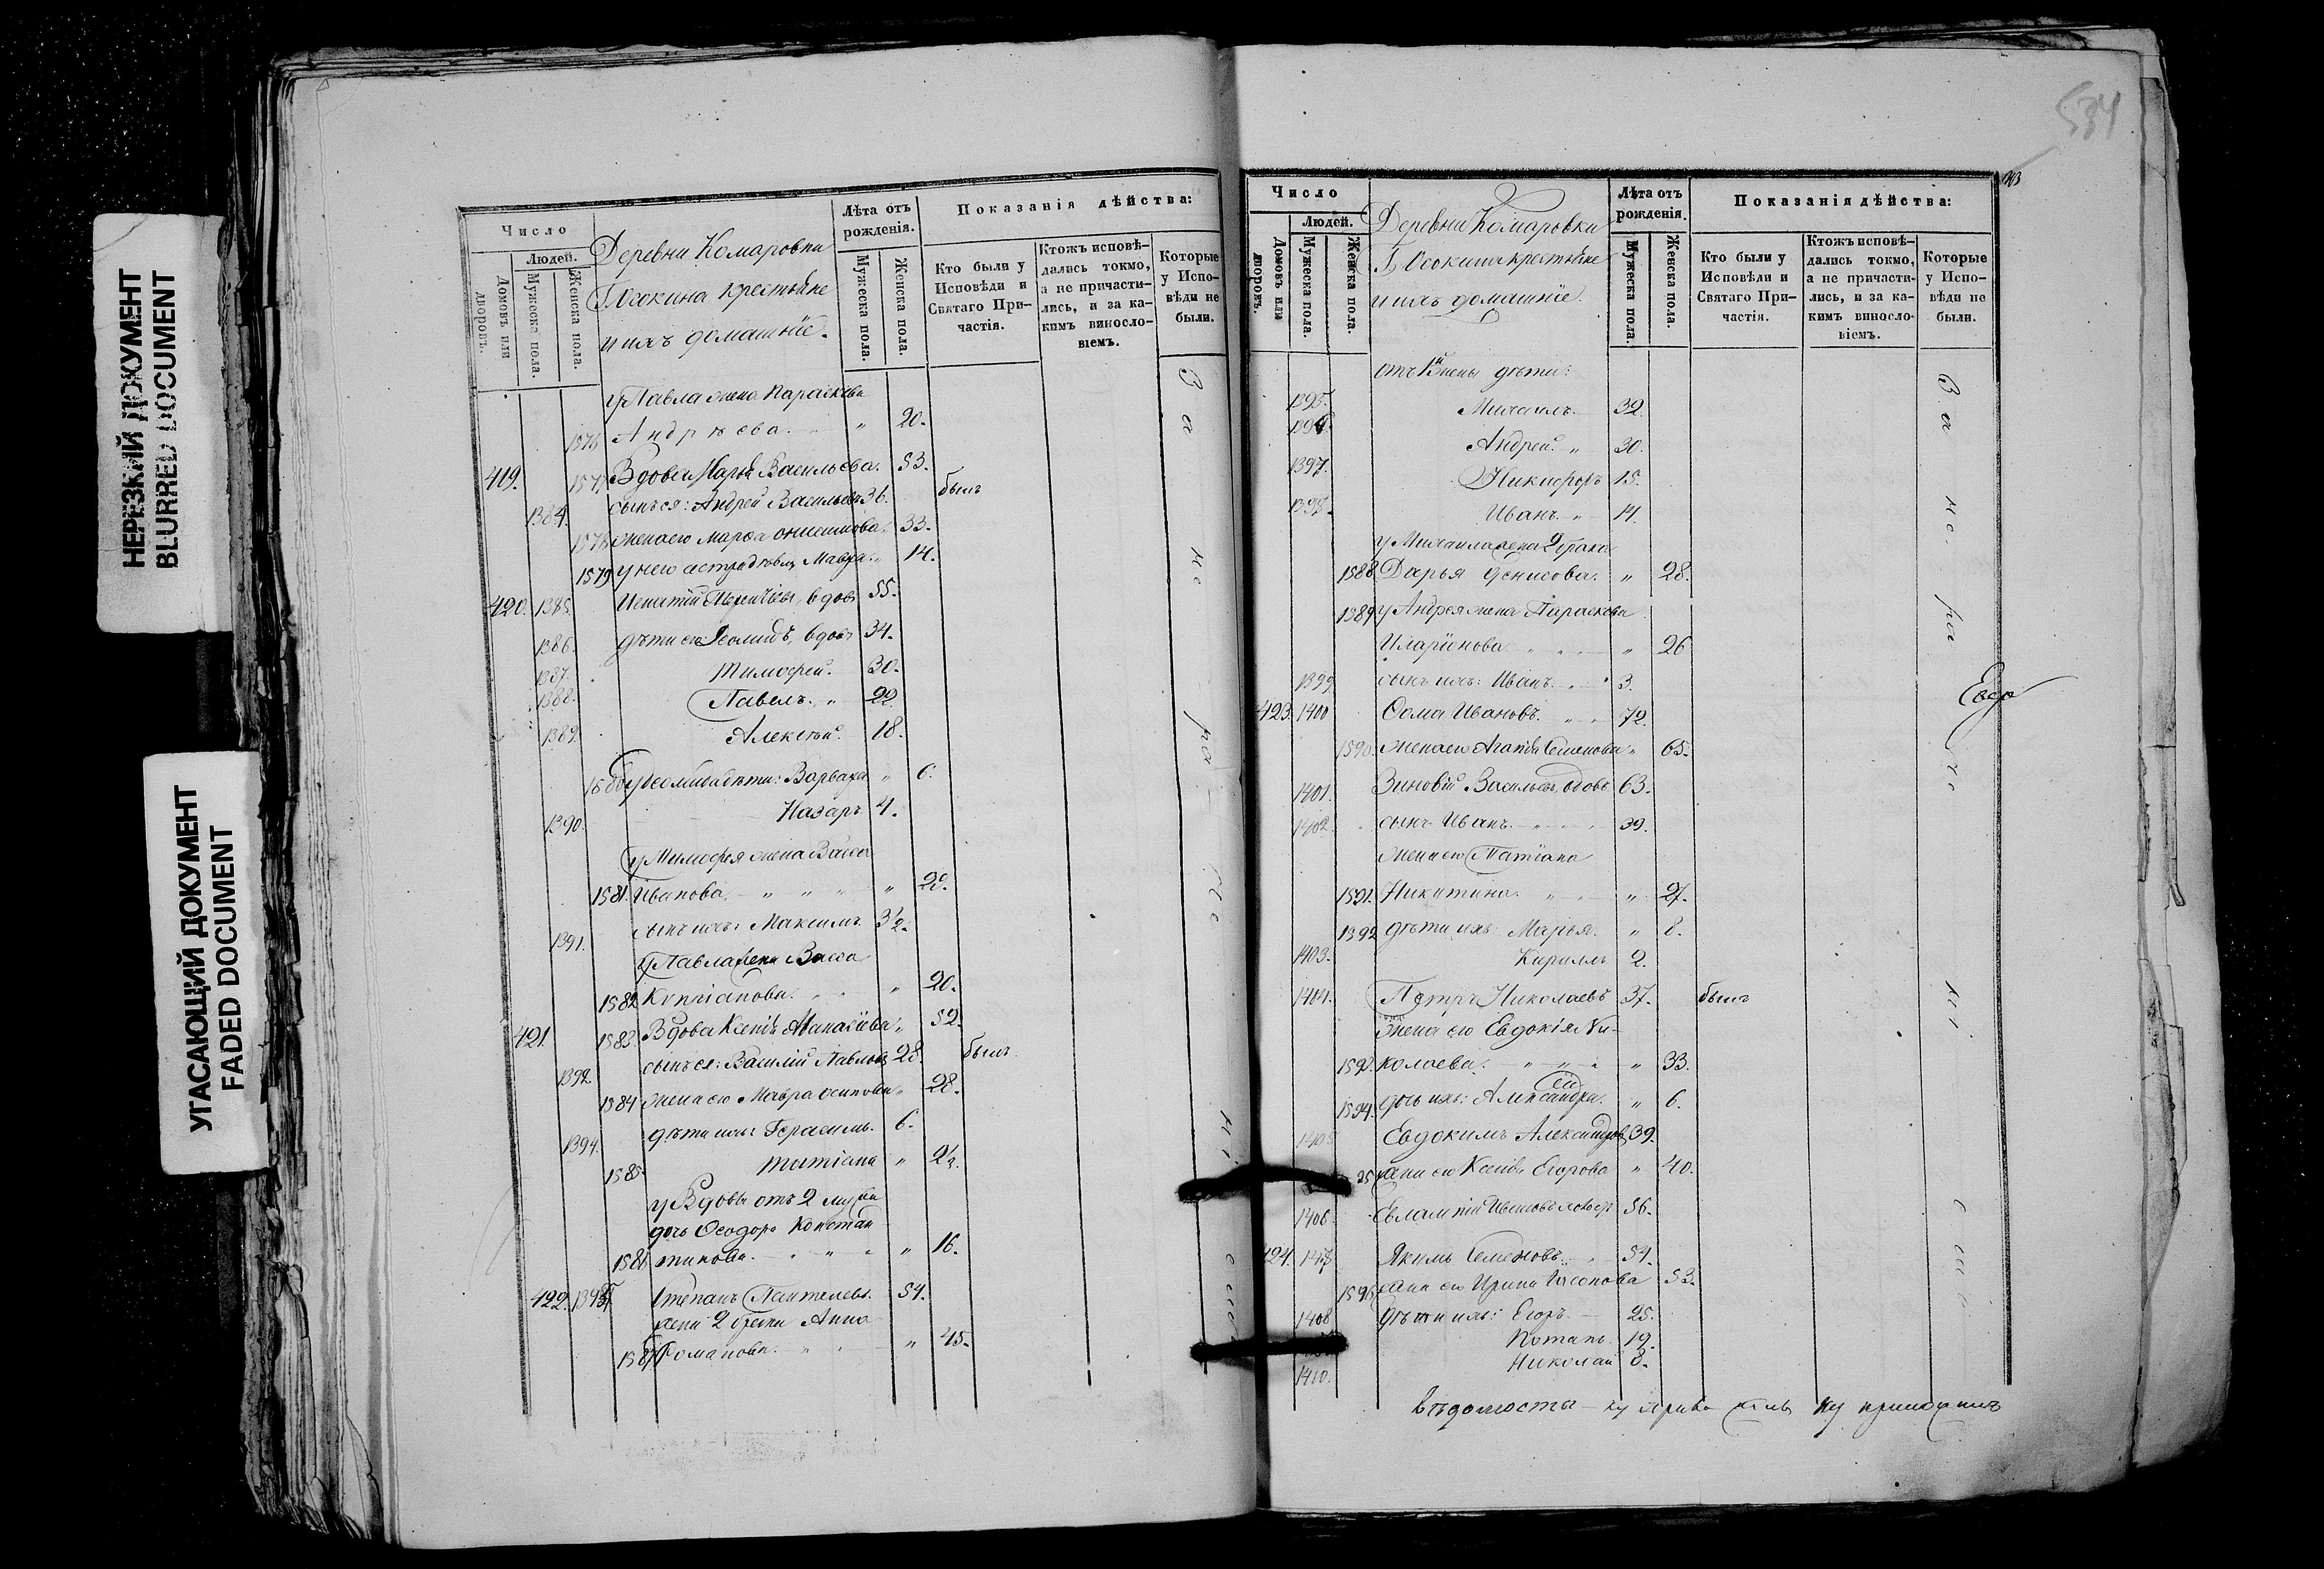 НЕРЕЗКИЙ ДОКУМЕНТ
BLURRED DOCUMENT
УГАСАЮЩИЙ ДОКУМЕНТ
FADED DOCUMENT
Число
Людей.
Домовъ или дворовъ.
Мужеска пола.
Женска пола.
Деревни Комаровки
Г. Осокина крестьяне
и ихъ домашніе.
Лѣта отъ рожденія.
Мужеска пола.
Женска пола.
Показанія дѣйства:
Кто были у Исповѣди и Святаго При-
частія.
Ктожъ исповѣ-
дались токмо,
а не причасти-
лись, и за ка-
кимъ виносло-
віемъ.
Которые
у Испо-
вѣди не
были.
у Павла жена Параскева
1576 Андрѣева. " 20.
419. 1577 Вдова Марья Васильева. 53.
1384. сынъ ея: Андрей Васильевъ 36. былъ
1578 жена его Марѳа Онисимова. 33.
1579 у него сестра дѣвица Мавра. " 14.
420. 1385. Игнатій вдовъ 55.
1386. дѣти его вдовъ 34.
1387. Тимоѳей. 30.
1388. Павелъ. " 22.
1389. Алексѣй. 18.
дѣти: Варвара " 6.
1390. Назаръ 4.
у Тимоѳея жена Васса
1581. Иванова " " " 22.
1391. сынъ ихъ: Максимъ 3½.
у Павла жена Васса
1582. " 20.
421. 1583. Вдова Ксенія Аѳанасіева " 52.
1392. сынъ ея: Василій Павловъ 28. былъ.
1584 жена его Мавра Осипова " 28.
1394. дѣти ихъ: Герасимъ. 6.
1585 Татіана " 2½.
у Вдовы отъ 2 мужа
дочь Ѳеодора Констан
1586 тинова. " " 16.
422. 1395 Степанъ Пантелеевъ. 54.
жена 2 брака Анна
1587 Романова. " 45.
Ва
не
ра
де
ні
емъ
534
Число
Людей.
Домовъ или дворовъ.
Мужеска пола.
Женска пола.
Деревни Комаровки
Г. Осокина крестьяне
и ихъ домашніе.
Лѣта отъ рожденія.
Мужеска пола.
Женска пола.
Показанія дѣйства:
Кто были у
Исповѣди и
Святаго При-
частія.
Ктожъ исповѣ-
дались токмо,
а не причасти-
лись, и за ка-
кимъ виносло-
віемъ.
Которые
у Испо-
вѣди не
были.
отъ 1й жены дѣти:
1395. Михаилъ. 32.
1396. Андрей. " 30.
1397. Никифоръ 15.
1398. Иванъ. " 11.
у Михаила жена 2 брака
1588 Дарья Денисова. " 28.
1589 у Андрея жена Параскева
Иларіонова. " 26
1399 сынъ ихъ: Иванъ. " 3.
423. 1400 Ѳома Ивановъ. " 72.
1590. жена его Агаѳія Семенова " 65.
1401. Зиновій Васильевъ, вдовъ 63.
1402. сынъ Иванъ. " 39.
жена его Татіана
1591. Никитина. " " 27.
1392 дѣти ихъ Марья. " 8.
1403. Кириллъ 2.
1404. Петръ Николаевъ 37. былъ
жена его Евдокія Ни-
1593. колаева. " " 33.
1594. дочь ихъ: Александра. " 6.
1405 Евдокимъ Александровъ 39.
жена его Ксенія Егорова " 40.
1406. Евлампій 56.
424. 1407 Якимъ Семеновъ. " 54.
1596 жена его Ирина 53.
1408 дѣти ихъ: Егоръ. 25.
Потапъ. 19.
1410. Николай 8.
Ва
не
ра
де
ні
емъ